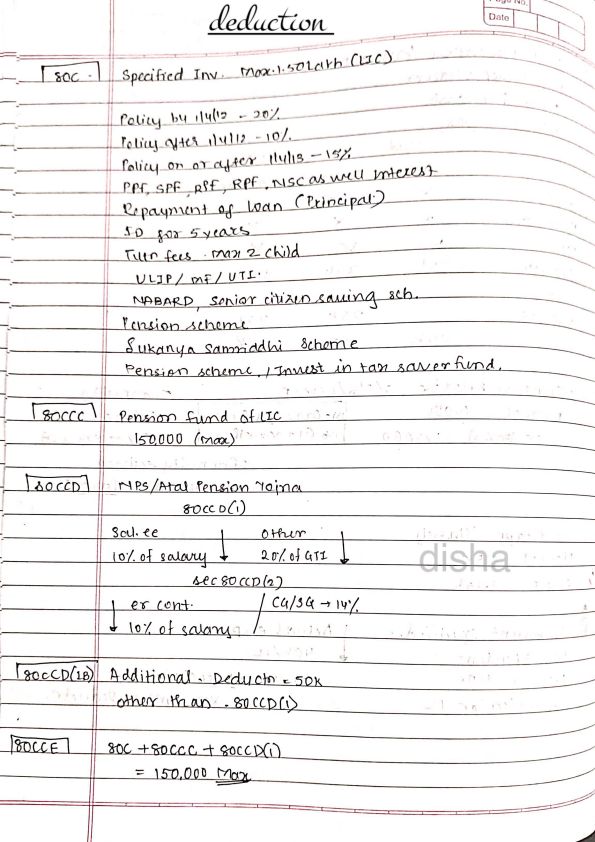 Page No.
Date
deduction
80C. Specified Inv. Max.1.50Lakh (LIC)
Policy by 1/4/12 - 20%
Policy after 1/4/12 - 10%
Policy on or after 1/4/13 - 15%
PPF, SPF, RPF, NSC as well interest
Repayment of loan (Principal)
FD for 5 years
Tutn fees. max 2 child
ULIP / MF / UTI.
NABARD, Senior citizen saving sch.
Pension scheme
Sukanya Samriddhi Scheme
Pension scheme. / Invest in tax saver fund.
80CCC Pension fund of LIC
150,000 (max)
80CCD NPS/Atal Pension Yojna
80CCD(1)
Sal. ee other
10% of salary ↓ 20% of GTI ↓
disha
sec 80CCD(2)
↓ er cont. / CG/SG → 14%
10% of salary
80CCD(1B) Additional. Deductn = 50K
other than. 80CCD(1)
80CCE 80C + 80CCC + 80CCD(1)
= 150,000 Max